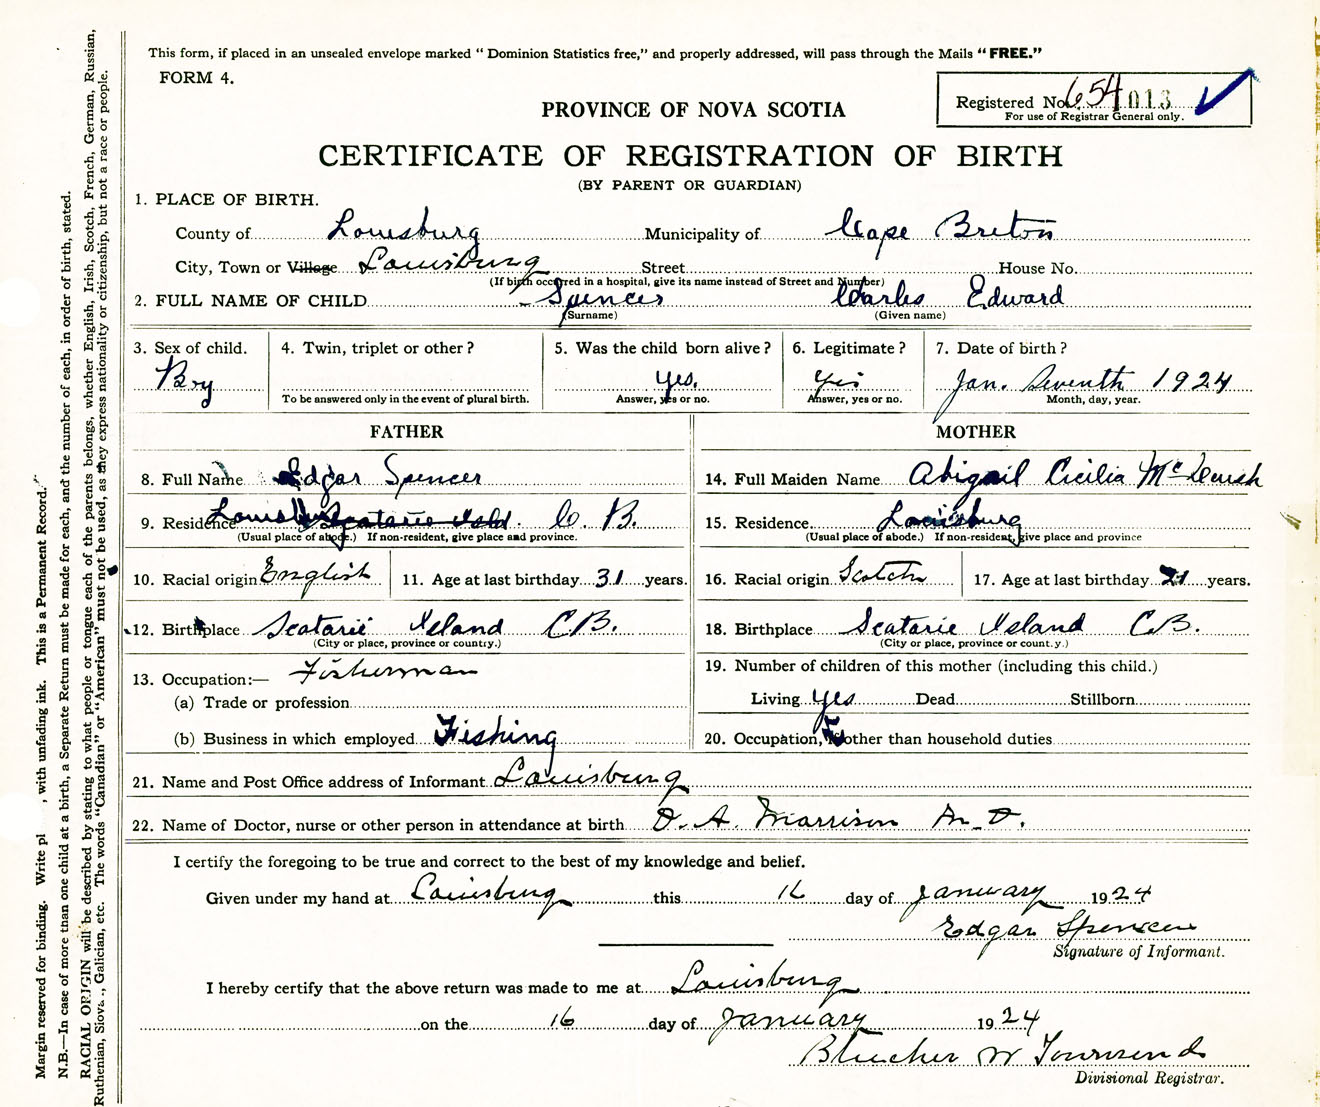 This form, if placed in an unsealed envelope marked “ Dominion Statistics free,” and properly addressed, will pass through the Mails “FREE.”
FORM 4.
Registered No. 654 013
For use of Registrar General only.
PROVINCE OF NOVA SCOTIA
CERTIFICATE OF REGISTRATION OF BIRTH
(BY PARENT OR GUARDIAN)
1. PLACE OF BIRTH.
County of Louisburg Municipality of Cape Breton
City, Town or Village Louisburg Street House No.
(If birth occurred in a hospital, give its name instead of Street and Number)
2. FULL NAME OF CHILD Spencer Charles Edward
(Surname) (Given name)
3. Sex of child. 4. Twin, triplet or other? 5. Was the child born alive? 6. Legitimate? 7. Date of birth?
Boy yes. Yes Jan. Seventh 1924
To be answered only in the event of plural birth. Answer, yes or no. Answer, yes or no. Month, day, year.
FATHER MOTHER
8. Full Name Edgar Spencer 14. Full Maiden Name Abigail Cicilia
9. Residence Louisburg Scatarie Isld. C. B. 15. Residence Louisburg
(Usual place of abode.) If non-resident, give place and province. (Usual place of abode.) If non-resident, give place and province
10. Racial origin English 11. Age at last birthday 31 years. 16. Racial origin Scotch 17. Age at last birthday 21 years.
12. Birthplace Scatarie Island C B. 18. Birthplace Scatarie Island C B.
(City or place, province or country.) (City or place, province or count.y.)
13. Occupation:— Fisherman 19. Number of children of this mother (including this child.)
(a) Trade or profession Living yes Dead Stillborn
(b) Business in which employed Fishing 20. Occupation, if other than household duties
21. Name and Post Office address of Informant Louisburg
22. Name of Doctor, nurse or other person in attendance at birth D. A. Morrison M. D.
I certify the foregoing to be true and correct to the best of my knowledge and belief.
Given under my hand at Louisburg this 16 day of January 1924
Edgar Spencer
Signature of Informant.
I hereby certify that the above return was made to me at Louisburg
on the 16 day of January 1924
Blucher W Townsend
Divisional Registrar.
Margin reserved for binding. Write pl , with unfading ink. This is a Permanent Record.
N.B.—In case of more than one child at a birth, a Separate Return must be made for each, and the number of each, in order of birth, stated.
RACIAL ORIGIN will be described by stating to what people or tongue each of the parents belongs, whether English, Irish, Scotch, French, German, Russian,
Ruthenian, Slova., Galician, etc. The words “Canadian” or “American” must not be used, as they express nationality or citizenship, but not a race or people.